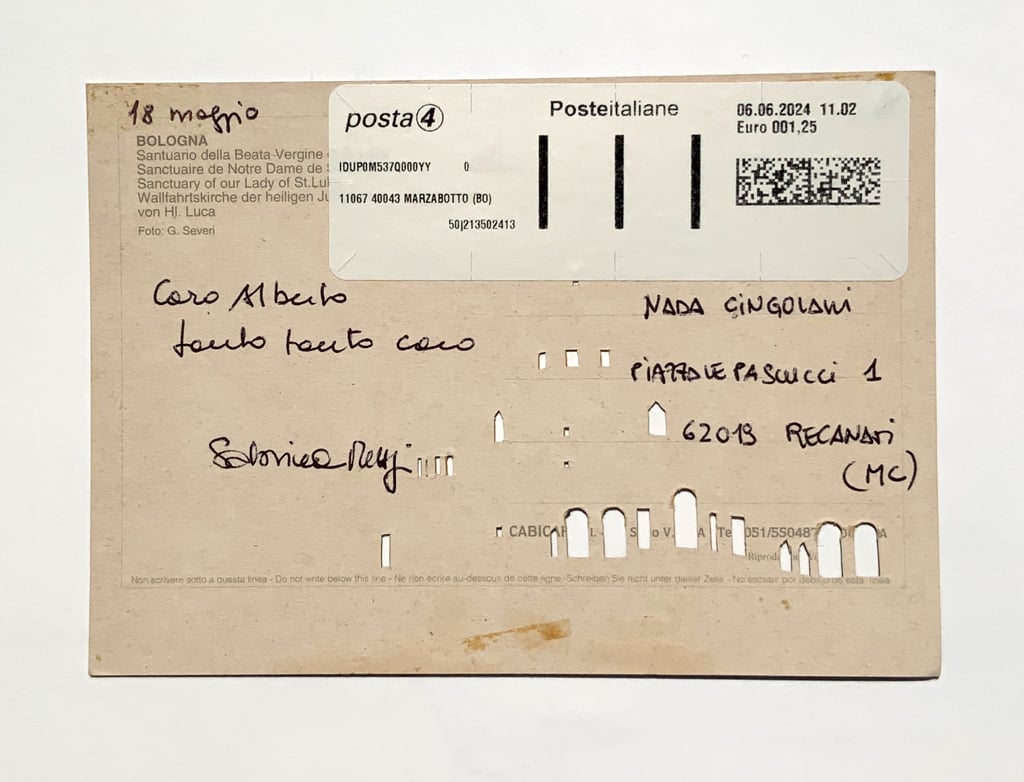 18 maggio
BOLOGNA
Santuario della Beata Vergine
Sanctuaire de Notre Dame de
Sanctuary of our Lady of St.Lu
Wallfahrtskirche der heiligen Ju
von Hl. Luca
Foto: G. Severi
posta 4
Posteitaliane
06.06.2024 11.02
Euro 001,25
IDUP0M537Q000YY 0
11067 40043 MARZABOTTO (BO)
50|213502413
Caro Alberto
tanto tanto caro
NADA CINGOLANI
PIAZZALE PASCUCCI 1
62019 RECANATI
(MC)
CABICAR
Tel 051/550487
Riprod
Non scrivere sotto a questa linea - Do not write below this line - Ne rien écrire au-dessous de cette ligne -Schreiben Sie nicht unter dieser Zeile - No escebir por debajo de esta linea